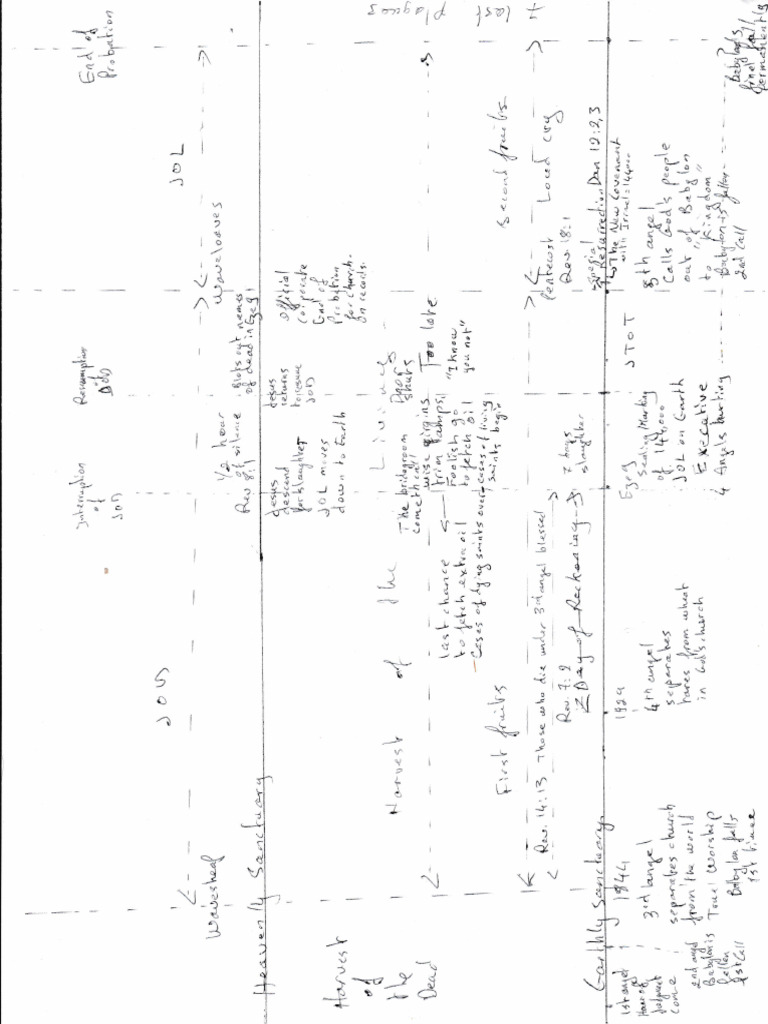 Interruption
of
JOD
Resumption
JOD
End of
Probation
JOD
JOL
Wavesheaf
Waveloaves
1/2 hour
of silence
Rev 8:1
Blots out names
of dead in Ezeg
Heavenly Sanctuary
Jesus
descend
for slaughter
JOL moves
down to Earth
Jesus
returns
to resume
JOD
Official
corporate
End of
Probation
for church.
on records.
Harvest
of
the
Dead
Harvest of the Living
The bridegroom
cometh
wise virgins
trim lamps,
Foolish go
to fetch oil
Door
shuts
Too late
"I know
you not"
7 last
plagues
last chance
to fetch extra oil
Cases of dying saints over
cases of living
saints begin
First fruits
Second fruits
Rev. 14:13 Those who die under 3rd angel blessed
Rev. 7:2
Day of Reckoning
7 days
slaughter
Pentecost
Rev 18:1
Loud cry
Special
Resurrection Dan 12:2,3
The New Covenant
with Israel: 144000
Earthly Sanctuary
1st angel
Hour of
Judgment
come
2nd angel
Babylon is
fallen
1st call
1844
3rd angel
separates church
from the world
True Worship
Babylon falls
1st time
1929
4th angel
separates
tares from wheat
in God's church
Ezeg
Sealing/Marking
of 144,000
JOL on Earth
Executive
4 Angels hurting
JTOT
8th angel
Calls God's people
out of Babylon
to "Kingdom"
Babylon is fallen
2nd call
Babylon's
final fall
permanently